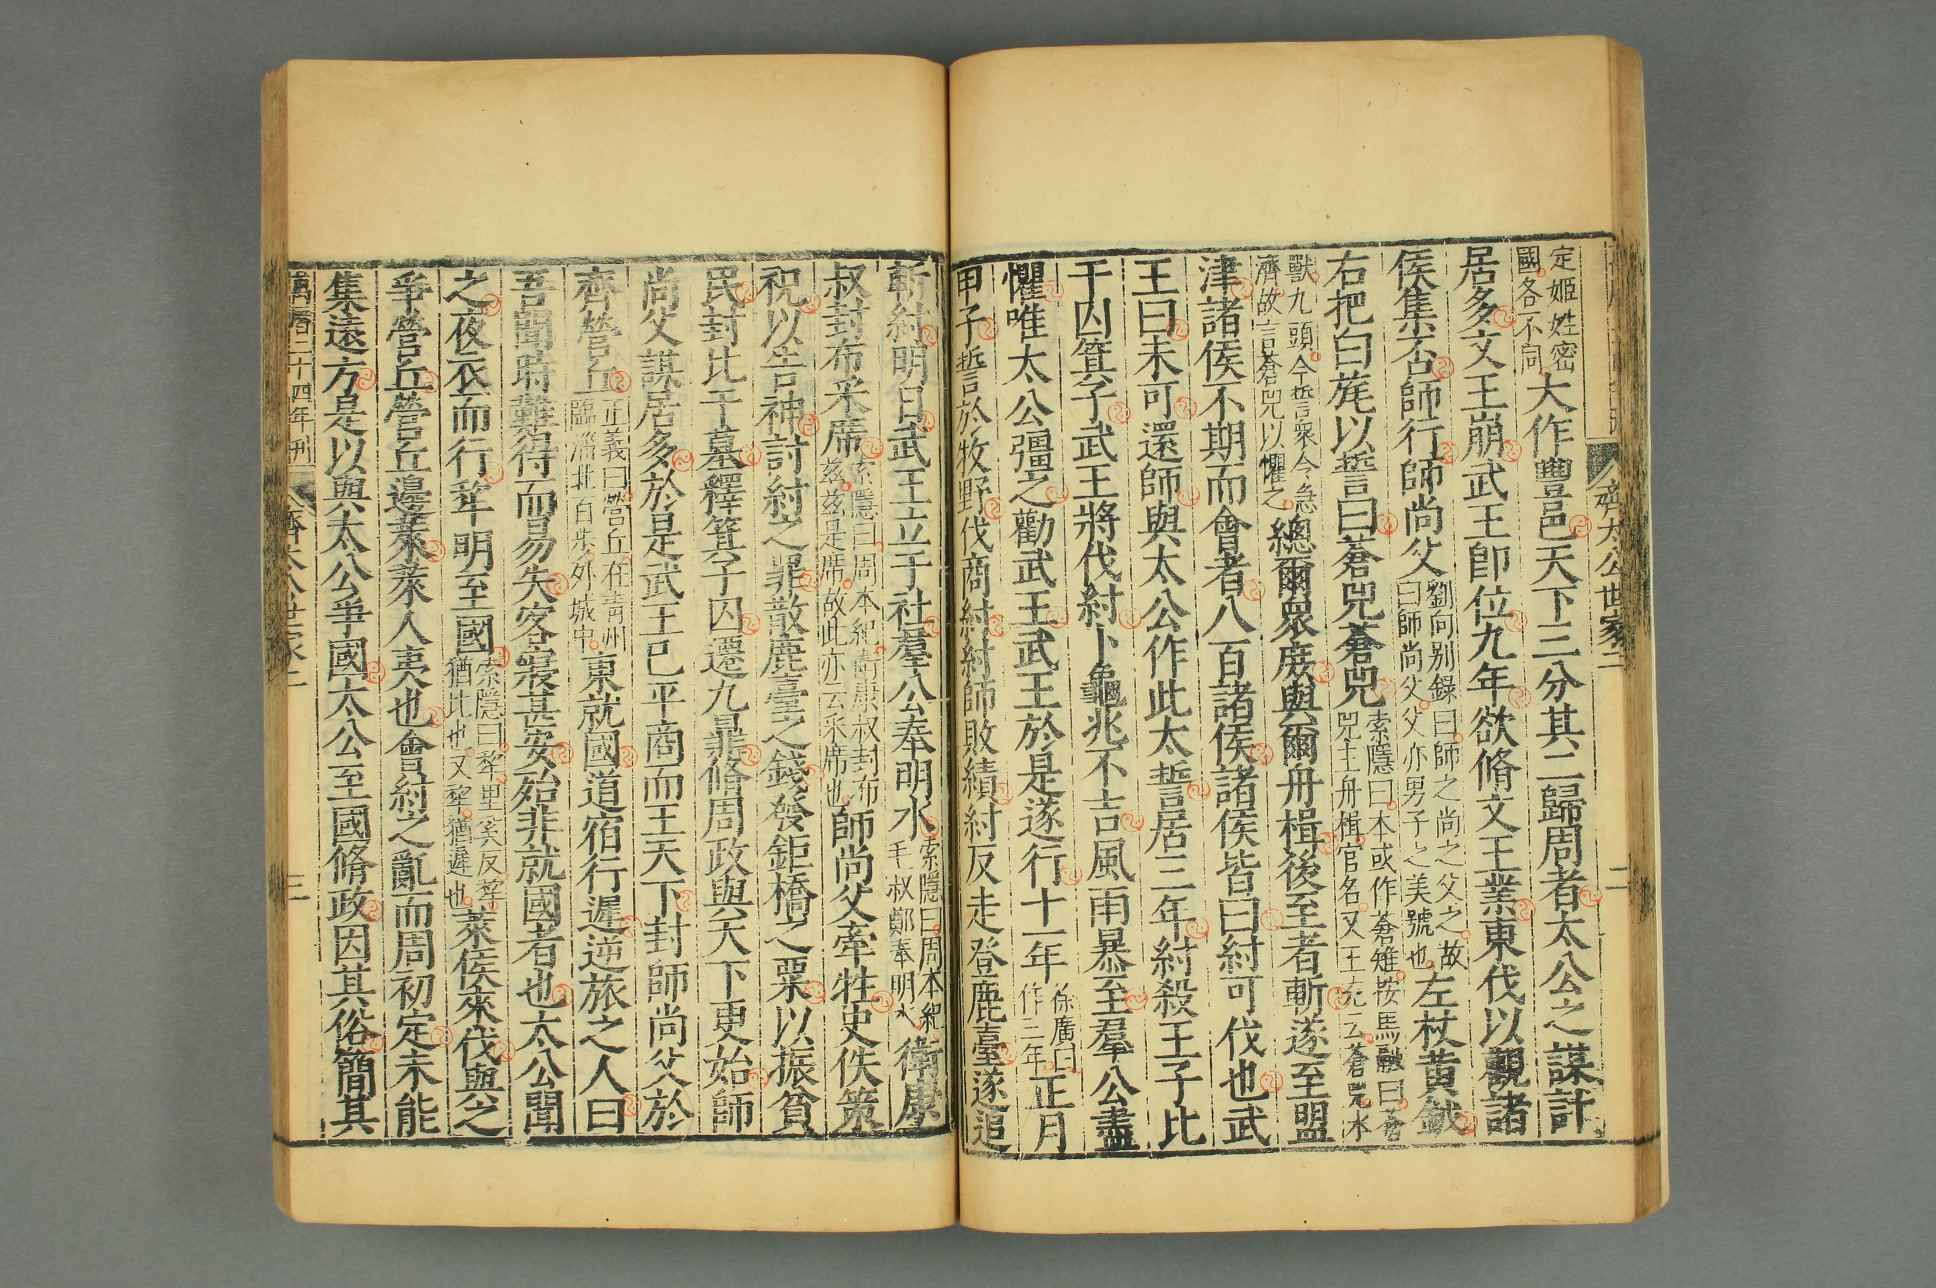 齊太公世家二
二
定姬姓密
國各不同
大作豐邑天下三分其二歸周者太公之謀計
居多文王崩武王卽位九年欲脩文王業東伐以觀諸
侯集否師行師尚父
劉向别録曰師之尚之父之故
曰師尚父父亦男子之美號也
左杖黃鉞
右把白旄以誓曰蒼兕蒼兕
索隱曰本或作蒼雉按馬融曰蒼
兕主舟楫官名又王充云蒼兕水
獸九頭今誓衆令急
濟故言蒼兕以懼之
總爾衆庶與爾舟楫後至者斬遂至盟
津諸侯不期而會者八百諸侯諸侯皆曰紂可伐也武
王曰未可還師與太公作此太誓居三年紂殺王子比
干囚箕子武王將伐紂卜龜兆不吉風雨暴至羣公盡
懼唯太公彊之勸武王武王於是遂行十一年
徐廣曰
作三年
正月
甲子誓於牧野伐商紂紂師敗績紂反走登鹿臺遂追
斬紂明日武王立于社羣公奉明水
索隱曰周本紀
毛叔鄭奉明水
衛康
叔封布采席
索隱曰周本紀衛康叔封布
兹兹是席故此亦云采席也
師尚父牽牲史佚策
祝以告神討紂之罪散鹿臺之錢發鉅橋之粟以振貧
民封比干墓釋箕子囚遷九鼎脩周政與天下更始師
尚父謀居多於是武王已平商而王天下封師尚父於
齊營丘
正義曰營丘在青州
臨淄北百步外城中
東就國道宿行遲逆旅之人曰
吾聞時難得而易失客寢甚安殆非就國者也太公聞
之夜衣而行犂明至國
索隱曰犂里奚反犂
猶比也又犂猶遲也
萊侯來伐與之
爭營丘營丘邊萊萊人夷也會紂之亂而周初定未能
集遠方是以與太公爭國太公至國脩政因其俗簡其
萬曆二十四年刊
齊太公世家二
三